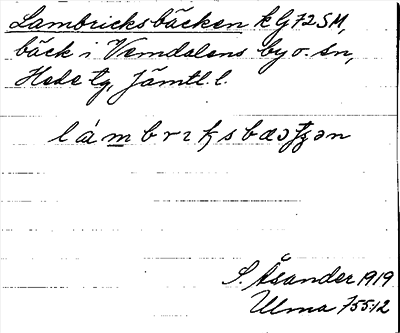 Lambricksbäcken k G72SM,
bäck i Vemdalens by o. sn,
Hede tg, Jämtl. l.
S. Åsander 1919
Ulma 755:12